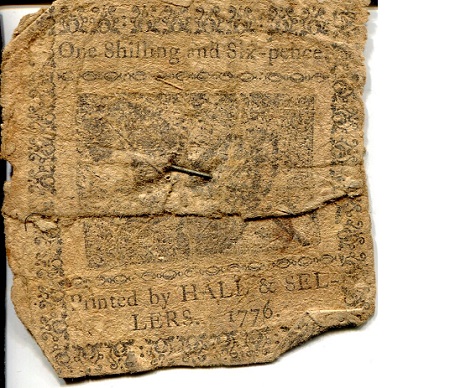 One Shilling and Six-pence.
Printed by HALL & SEL-
LERS. 1776.